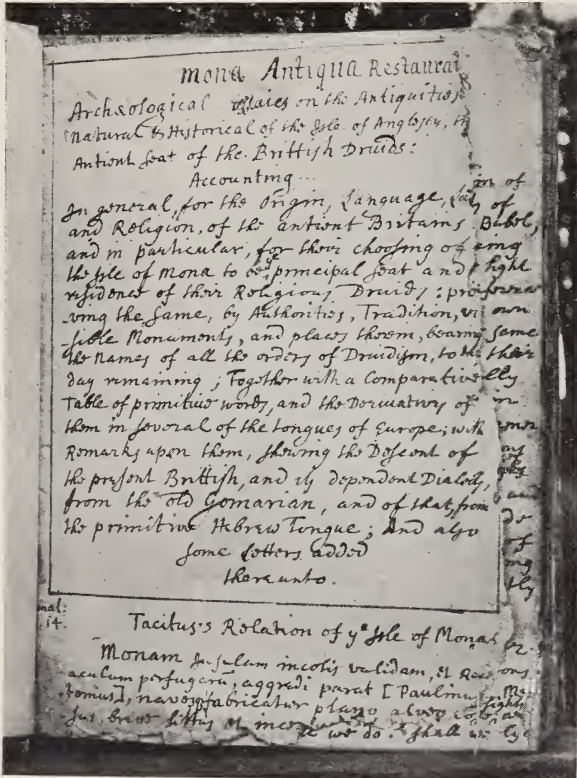 Mona Antiqua Restaurat
Archæological on the Antiquities
Natural & Historical of the Isle of Anglesey, th
Antient seat of the Brittish Druids:
Accounting
In general, for the Origin, Language,
and Religion, of the antient Britains
and in particular, for their choosing of
the Isle of Mona to be yᵉ principal seat and
residence of their Religious Druids: pro
-ving the same, by Authorities, Tradition, vi
-sible Monuments, and places therein, bearing
the names of all the orders of Druidism, to this
day remaining; Together with a Comparative
Table of primitive words, and the Derivatives of
them in several of the tongues of Europe; with
Remarks upon them, shewing the Descent of
the present Brittish, and its dependent Dialects,
from the old Gomarian, and of that, from
the primitive Hebrew Tongue; And also
some Letters added
thereunto.
nal:
14.
Tacitus's Relation of yᵉ Isle of Mona
Monam Insulam incolis validam, et Rece
aculum perfugarū, aggredi parat [Paulinus
-tonius], naves fabricatur plano alveo
sus, breve littus et
we do shall we
in of
of
Babel,
emg
light
own
same
their
lly
in